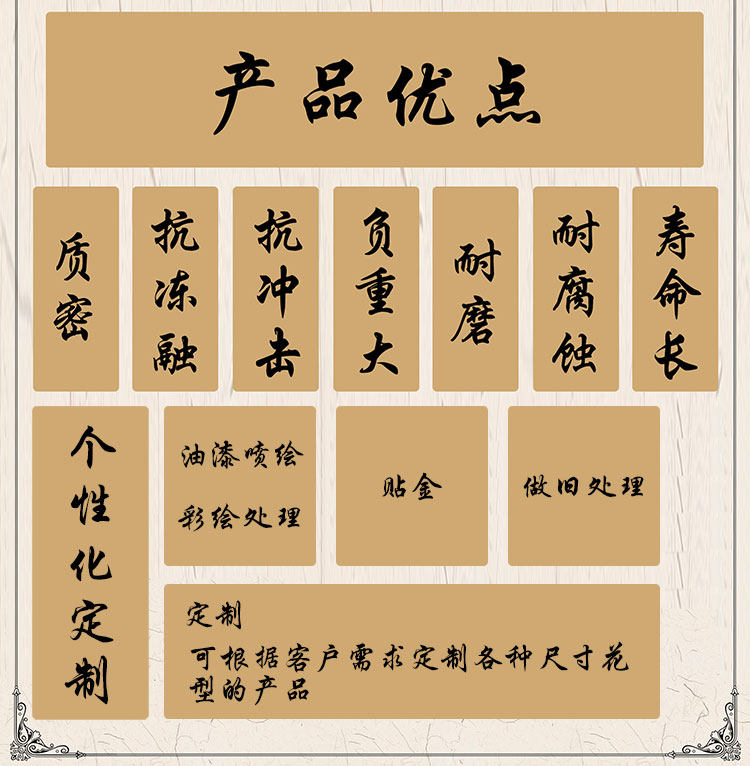 产品优点
质密
抗冻融
抗冲击
负重大
耐磨
耐腐蚀
寿命长
个性化定制
油漆喷绘
彩绘处理
贴金
做旧处理
定制
可根据客户需求定制各种尺寸花
型的产品